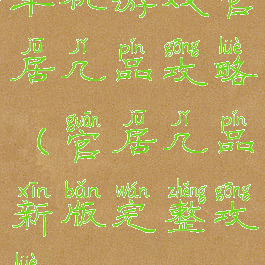 单机游戏官
jū jǐ pǐn gōng lüè
居几品攻略
guān jū jǐ pǐn
（官居几品
xīn bǎn wán zhěng gōng
新版完整攻
lüè